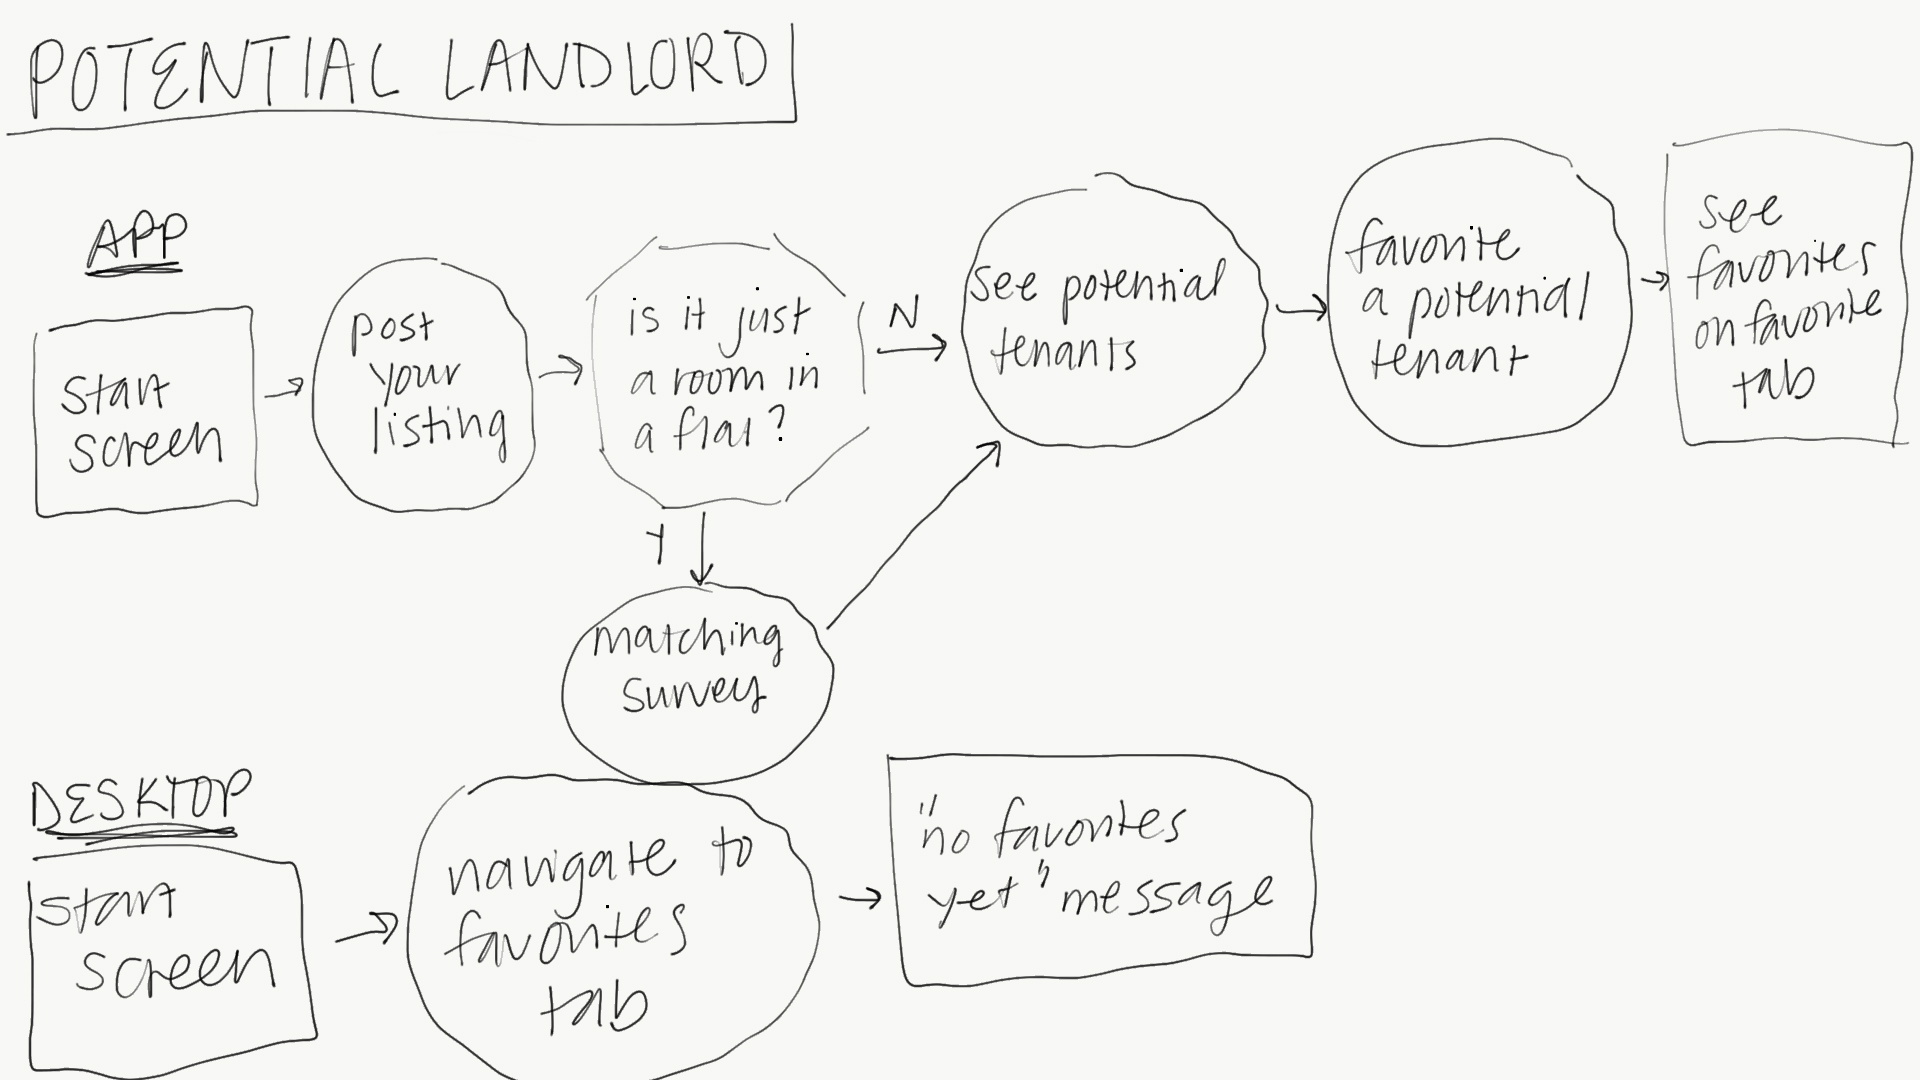 POTENTIAL LANDLORD
APP
start
screen
post
your
listing
is it just
a room in
a flat?
N
Y
matching
survey
see potential
tenants
favorite
a potential
tenant
see
favorites
on favorite
tab
DESKTOP
start
screen
navigate to
favorites
tab
"no favorites
yet" message